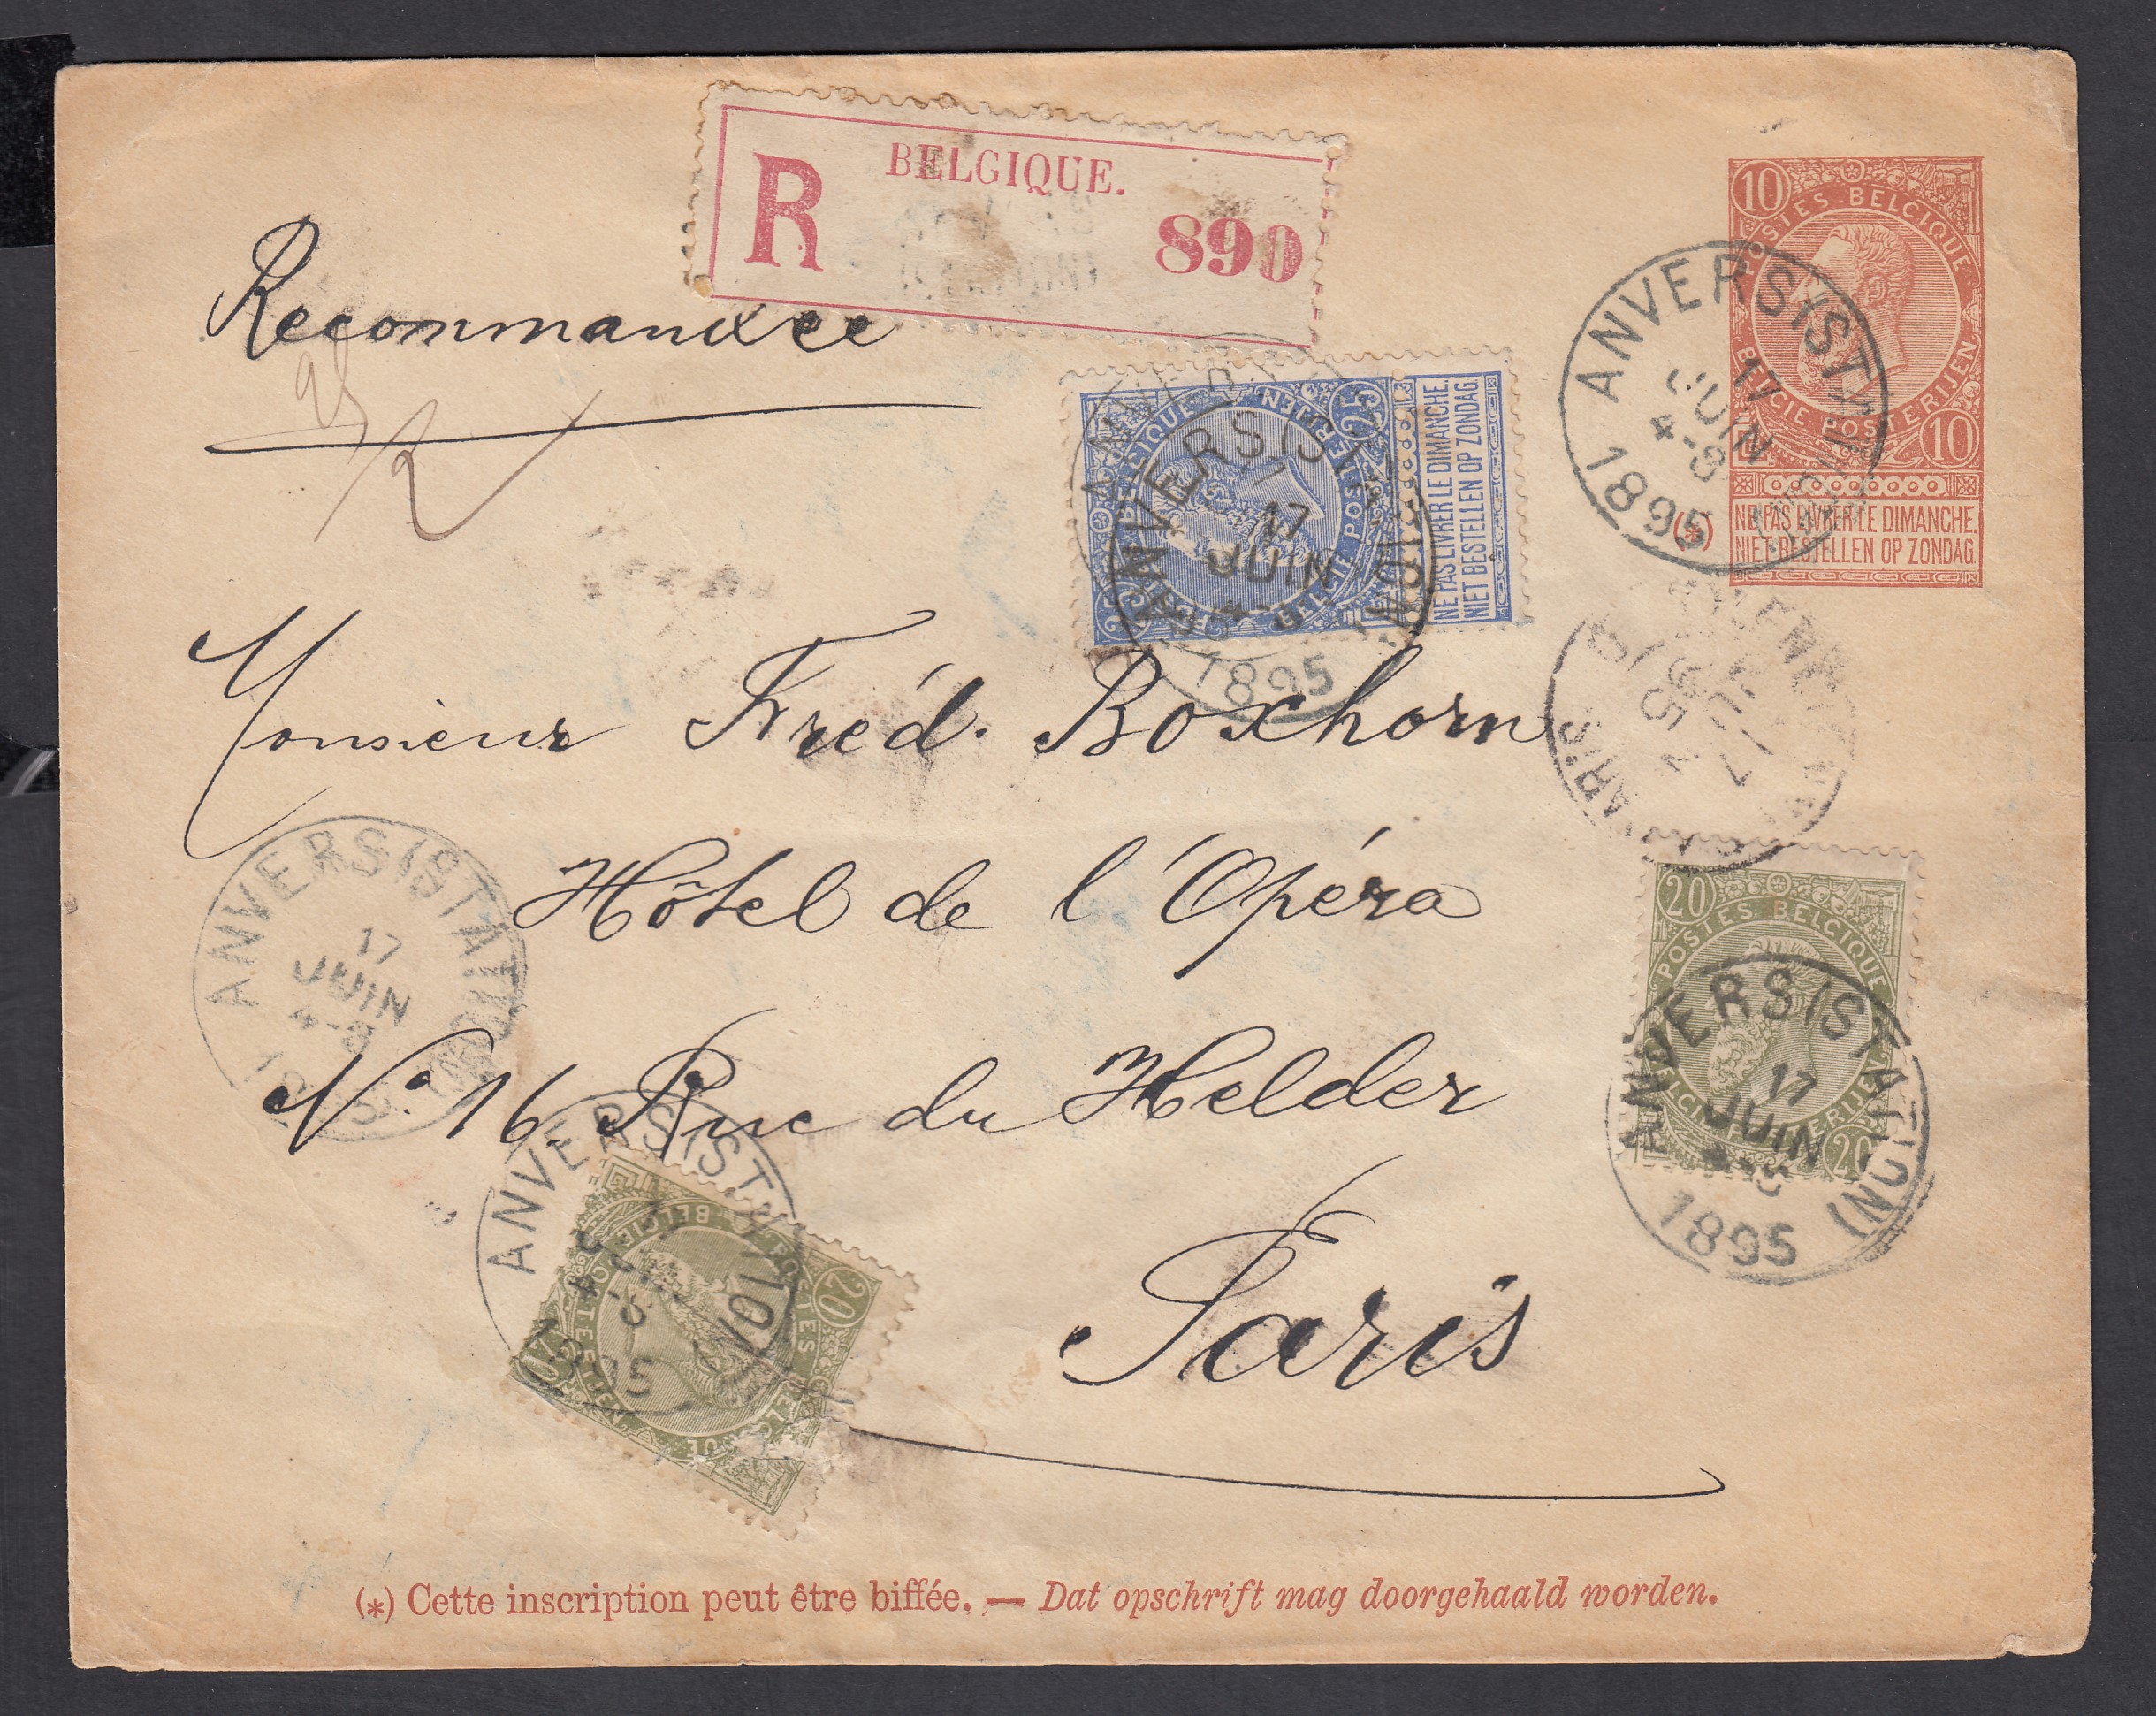 BELGIQUE.
R 890
Recommandée
10
POSTES BELGIQUE
BELGIE POSTERIJEN
10
NE PAS LIVRER LE DIMANCHE.
NIET BESTELLEN OP ZONDAG.
(*)
ANVERS (STATION)
17
JUIN
4-8
1895
25
POSTES BELGIQUE
BELGIE POSTERIJEN
25
NE PAS LIVRER LE DIMANCHE.
NIET BESTELLEN OP ZONDAG.
ANVERS (STATION)
17
JUIN
1895
JUIN
95
Monsieur Fréd. Boxhorn
Hôtel de l'Opéra
N° 16. Rue du Helder
Paris
ANVERS (STATION)
17
JUIN
4-8
20
POSTES BELGIQUE
BELGIE POSTERIJEN
20
ANVERS (STATION)
17
JUIN
1895
20
POSTES BELGIQUE
20
ANVERS (STATION)
1895
(*) Cette inscription peut être biffée. — Dat opschrift mag doorgehaald worden.